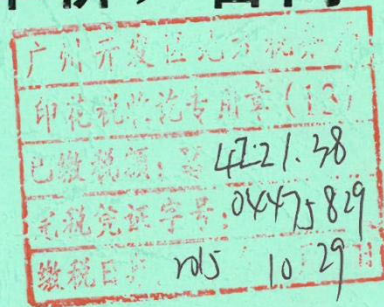 广州开发区地方税务局
印花税收讫专用章(13)
已缴税额:¥4221.38
完税凭证字号:04475829
缴税日期 2015 10 29日